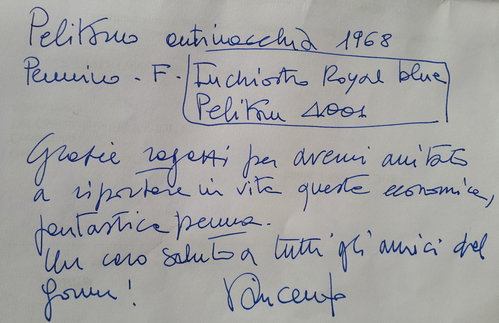 Pelikano antimacchia 1968
Pennino - F. - Inchiostro Royal blue
Pelikan 4001
Grazie ragazzi per avermi aiutato
a riportare in vita questa economica,
fantastica penna.
Un caro saluto a tutti gli amici del
forum! Vincenzo